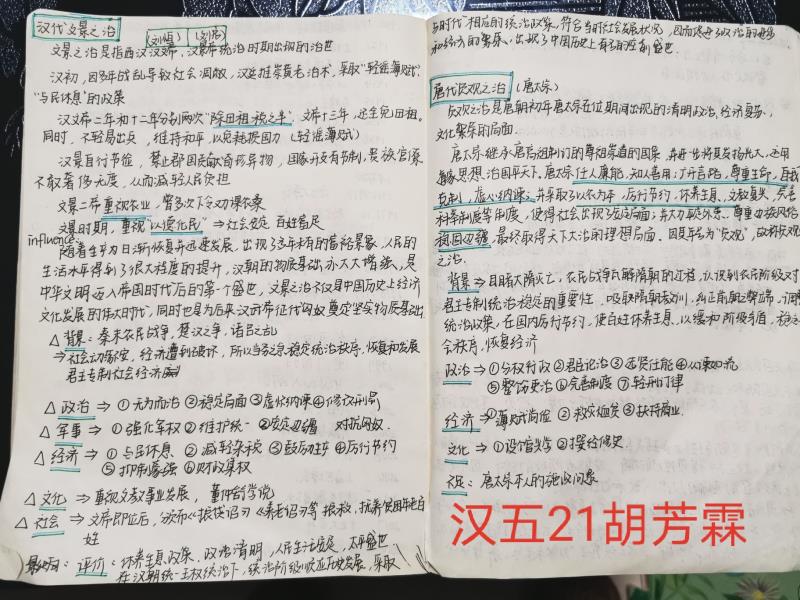 汉代文景之治 (刘恒) (刘启)
文景之治是指西汉汉文帝、汉景帝统治时期出现的治世
汉初,因多年战乱导致社会凋敝,汉廷推崇黄老治术,采取"轻徭薄赋"
"与民休息"的政策
汉文帝二年和十二年分别两次"除田租税之半",文帝十三年,还全免田租。
同时,不轻易出兵,维持和平,以免耗损国力(轻徭薄赋)
汉景自行节俭,禁止郡国贡献奇珍异物,国家开支有节制,贵族官僚
不敢奢侈无度,从而减轻人民负担
文景二帝重视农业,曾多次下令劝课农桑
文景时期,重视"以德化民" ⇒ 社会安定 百姓富足
influence:
随着生产日渐恢复并迅速发展,出现了多年未有的富裕景象,人民的
生活水平得到了很大程度的提升,汉朝的物质基础亦大大增强,是
中华文明迈入帝国时代后的第一个盛世,文景之治不仅是中国历史上经济
文化发展的伟大时代,同时也是为后来汉武帝征伐匈奴奠定坚实物质基础
△背景:秦末农民战争,楚汉之争,诸吕之乱
⇒社会动荡不安,经济遭到破坏,所以当务之急稳定统治秩序,恢复和发展
君主专制社会经济
△政治 ⇒ ①无为而治 ②稳定局面 ③虚怀纳谏 ④修改刑罚
△军事 ⇒ ①强化军权 ②维护统一 ③安定边疆 对抗匈奴
△经济 ⇒ ①与民休息 ②减轻杂税 ③鼓励生产 ④厉行节约
⑤抑制豪强 ⑥财政集权
△文化 ⇒ 重视文教事业发展,董仲舒学说
△社会 ⇒ 文帝即位后,分颁布《振贷诏》《养老诏》等 振救、抚养年老百
姓
评价:休养生息政策,政治清明,人民生活安定,太平盛世
在汉朝统一王权统治下,统治阶级顺应历史发展,采取
与时代相应的统治政策,符合当时社会发展状况,因而造就了政治的进步
和经济的繁荣,出现了中国历史上有名的治制盛世。
唐代贞观之治 (唐太宗)
贞观之治是唐朝初年唐太宗在位期间出现的清明政治,经济复苏、
文化繁荣的局面。
唐太宗继承唐高祖制订的尊祖崇道的国策,并进一步将其发扬光大,运用
道家思想治国平天下。唐太宗任人廉能,知人善用;广开言路,尊重生命,自我
克制,虚心纳谏;并采取了以农为本,厉行节约,休养生息,文教复兴,完善
科举制度等制度,使得社会出现了安定局面;并大力平定外患,尊重边族风俗
稳固边疆,最终取得天下大治的理想局面。因其年号为"贞观",故称贞观
之治。
背景 ⇒ 目睹大隋灭亡,农民战争瓦解隋朝的过程,认识到农民阶级对
君主专制统治稳定的重要性,吸取隋朝教训,纠正前朝之弊端,调整
统治政策,在国内厉行节约,使百姓休养生息,以缓和阶级矛盾,稳定
会秩序,恢复经济
政治 ⇒ ①分权行政 ②君臣论治 ③选贤任能 ④从谏如流
⑤整饬吏治 ⑥完善制度 ⑦轻刑订律
经济 ⇒ ①薄赋尚俭 ②救灾恤贫 ③扶持商业
文化 ⇒ ①设馆兴学 ②撰写修史
不足:唐太宗本人的施政问题
汉五21胡芳霖